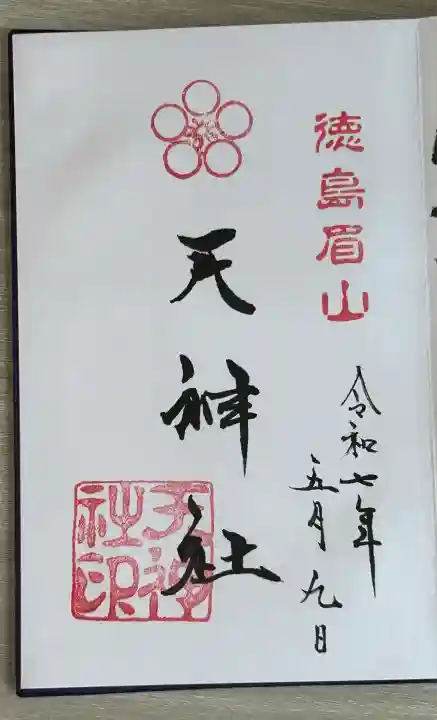 徳島眉山
令和七年
五月九日
天神社
天神
社印